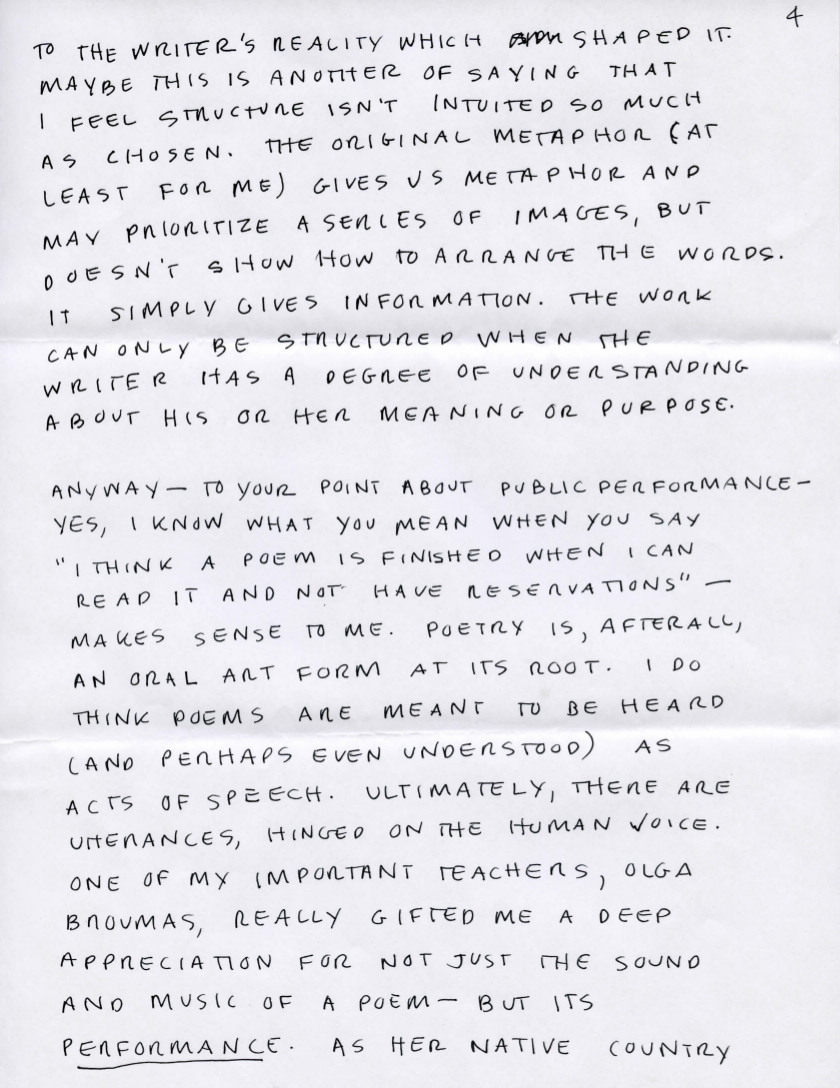 4
TO THE WRITER'S REALITY WHICH SHAPED IT.
MAYBE THIS IS ANOTHER OF SAYING THAT
I FEEL STRUCTURE ISN'T INTUITED SO MUCH
AS CHOSEN. THE ORIGINAL METAPHOR (AT
LEAST FOR ME) GIVES US METAPHOR AND
MAY PRIORITIZE A SERIES OF IMAGES, BUT
DOESN'T SHOW HOW TO ARRANGE THE WORDS.
IT SIMPLY GIVES INFORMATION. THE WORK
CAN ONLY BE STRUCTURED WHEN THE
WRITER HAS A DEGREE OF UNDERSTANDING
ABOUT HIS OR HER MEANING OR PURPOSE.
ANYWAY — TO YOUR POINT ABOUT PUBLIC PERFORMANCE —
YES, I KNOW WHAT YOU MEAN WHEN YOU SAY
"I THINK A POEM IS FINISHED WHEN I CAN
READ IT AND NOT HAVE RESERVATIONS" —
MAKES SENSE TO ME. POETRY IS, AFTERALL,
AN ORAL ART FORM AT ITS ROOT. I DO
THINK POEMS ARE MEANT TO BE HEARD
(AND PERHAPS EVEN UNDERSTOOD) AS
ACTS OF SPEECH. ULTIMATELY, THERE ARE
UTTERANCES, HINGED ON THE HUMAN VOICE.
ONE OF MY IMPORTANT TEACHERS, OLGA
BROUMAS, REALLY GIFTED ME A DEEP
APPRECIATION FOR NOT JUST THE SOUND
AND MUSIC OF A POEM — BUT ITS
PERFORMANCE. AS HER NATIVE COUNTRY